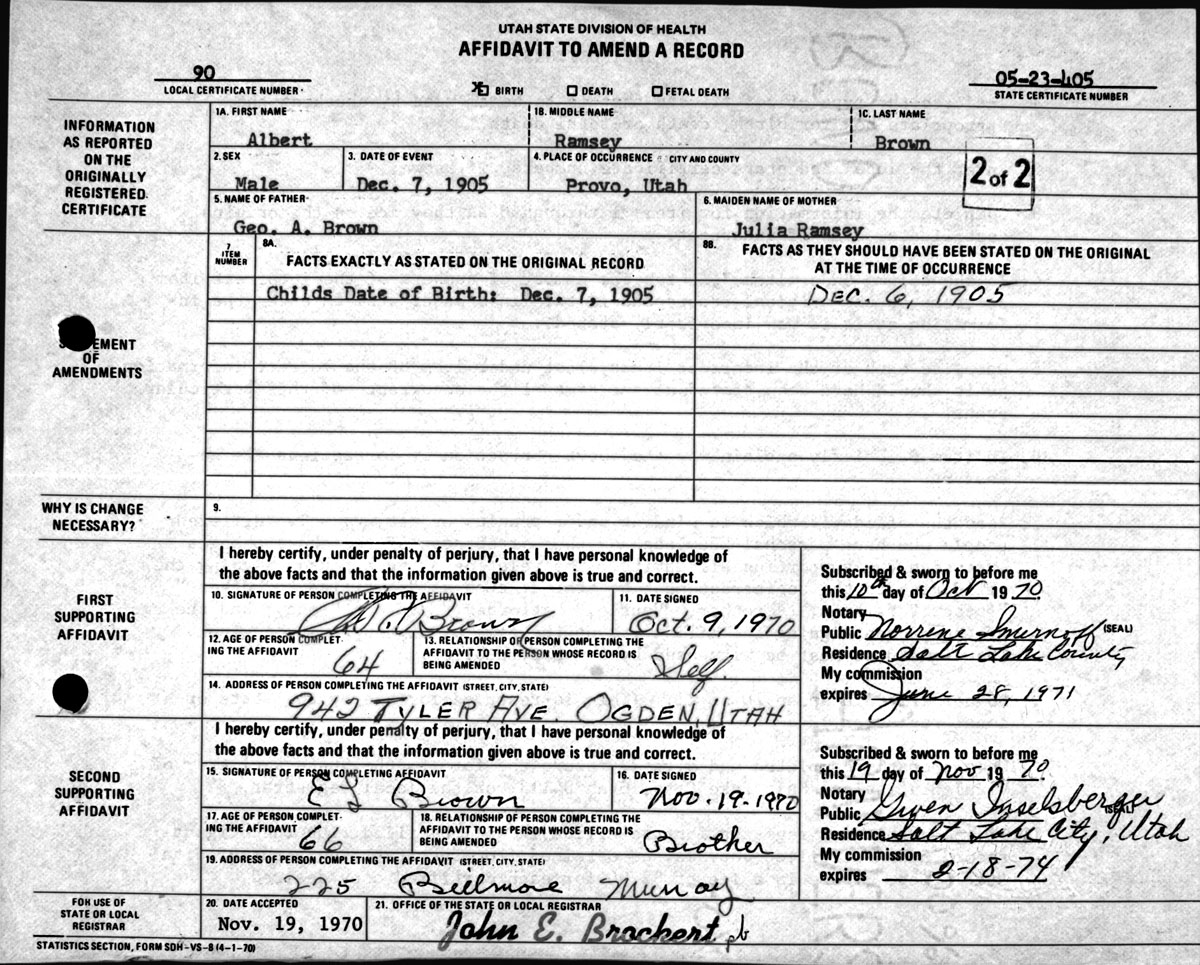 UTAH STATE DIVISION OF HEALTH
AFFIDAVIT TO AMEND A RECORD
90
LOCAL CERTIFICATE NUMBER
X BIRTH DEATH FETAL DEATH
05-23-405
STATE CERTIFICATE NUMBER
INFORMATION
AS REPORTED
ON THE
ORIGINALLY
REGISTERED
CERTIFICATE
1A. FIRST NAME 1B. MIDDLE NAME 1C. LAST NAME
Albert Ramsey Brown
2. SEX 3. DATE OF EVENT 4. PLACE OF OCCURRENCE CITY AND COUNTY
Male Dec. 7, 1905 Provo, Utah
2 of 2
5. NAME OF FATHER 6. MAIDEN NAME OF MOTHER
Geo. A. Brown Julia Ramsey
7 ITEM NUMBER
8A. FACTS EXACTLY AS STATED ON THE ORIGINAL RECORD
8B. FACTS AS THEY SHOULD HAVE BEEN STATED ON THE ORIGINAL
AT THE TIME OF OCCURRENCE
Childs Date of Birth: Dec. 7, 1905 DEC. 6, 1905
EMENT
OF
AMENDMENTS
WHY IS CHANGE
NECESSARY?
9.
FIRST
SUPPORTING
AFFIDAVIT
I hereby certify, under penalty of perjury, that I have personal knowledge of
the above facts and that the information given above is true and correct.
10. SIGNATURE OF PERSON COMPLETING THE AFFIDAVIT 11. DATE SIGNED
Brown Oct. 9, 1970
12. AGE OF PERSON COMPLET-
ING THE AFFIDAVIT
64
13. RELATIONSHIP OF PERSON COMPLETING THE
AFFIDAVIT TO THE PERSON WHOSE RECORD IS
BEING AMENDED
Self
14. ADDRESS OF PERSON COMPLETING THE AFFIDAVIT (STREET, CITY, STATE)
942 TYLER AVE. OGDEN, UTAH
Subscribed & sworn to before me
this 10th day of Oct 1970
Notary
Public Norrene Smirnoff (SEAL)
Residence Salt Lake County
My commission
expires June 28, 1971
SECOND
SUPPORTING
AFFIDAVIT
I hereby certify, under penalty of perjury, that I have personal knowledge of
the above facts and that the information given above is true and correct.
15. SIGNATURE OF PERSON COMPLETING AFFIDAVIT 16. DATE SIGNED
E L Brown Nov. 19-1970
17. AGE OF PERSON COMPLET-
ING THE AFFIDAVIT
66
18. RELATIONSHIP OF PERSON COMPLETING THE
AFFIDAVIT TO THE PERSON WHOSE RECORD IS
BEING AMENDED
Brother
19. ADDRESS OF PERSON COMPLETING THE AFFIDAVIT (STREET, CITY, STATE)
225 Murray
Subscribed & sworn to before me
this 19 day of Nov 1970
Notary
Public Gwen Inselsberger (SEAL)
Residence Salt Lake City, Utah
My commission
expires 2-18-74
FOR USE OF
STATE OR LOCAL
REGISTRAR
20. DATE ACCEPTED 21. OFFICE OF THE STATE OR LOCAL REGISTRAR
Nov. 19, 1970 John E. Brockert pb
STATISTICS SECTION, FORM SDH-VS-8 (4-1-70)